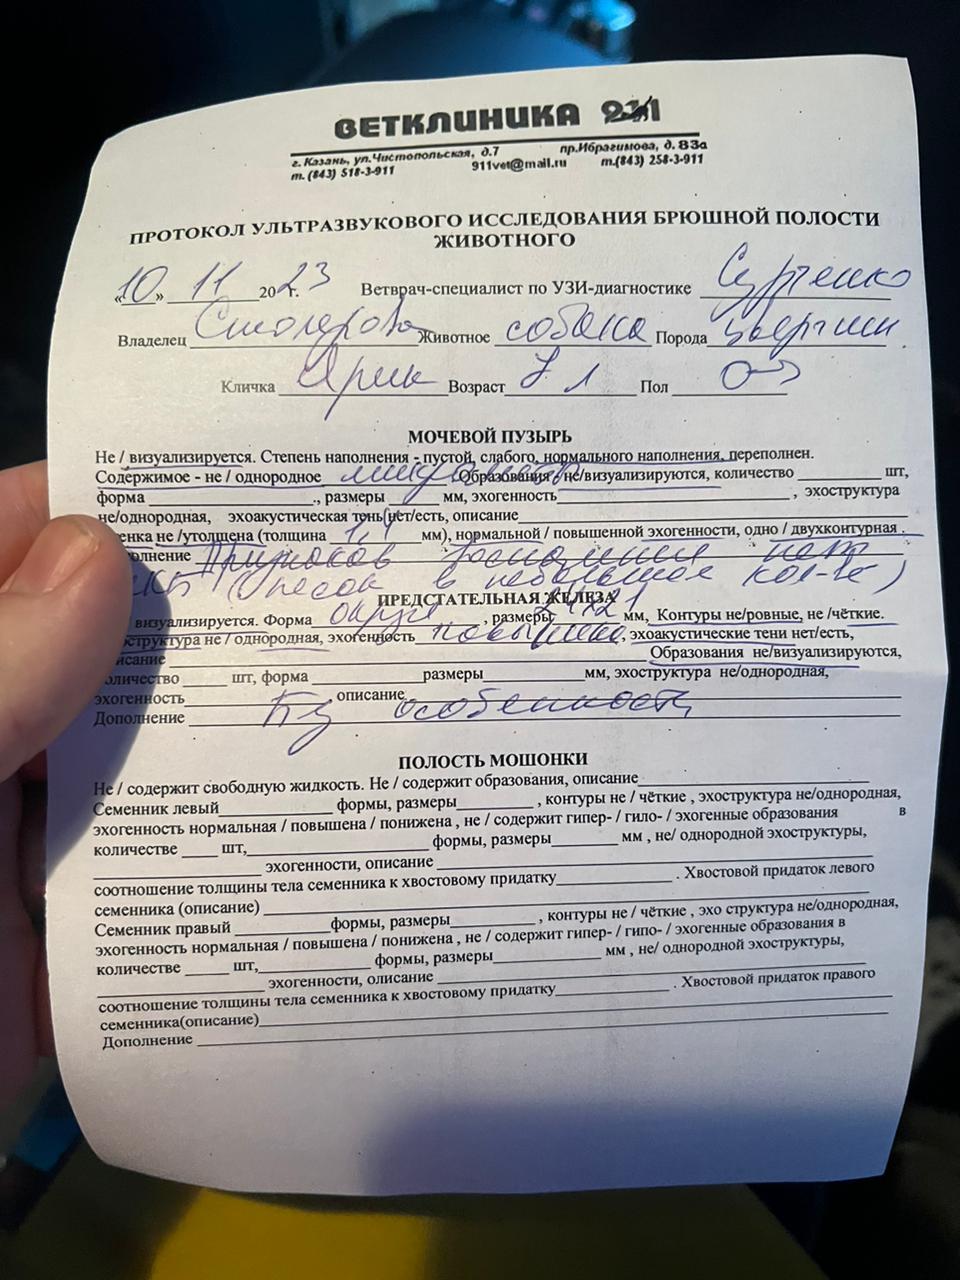 ВЕТКЛИНИКА 911
г. Казань, ул.Чистопольская, д.7 пр.Ибрагимова, д. 83а
т. (843) 518-3-911 911vet@mail.ru т.(843) 258-3-911
ПРОТОКОЛ УЛЬТРАЗВУКОВОГО ИССЛЕДОВАНИЯ БРЮШНОЙ ПОЛОСТИ
ЖИВОТНОГО
«10» 11 2023 г. Ветврач-специалист по УЗИ-диагностике
Владелец Столерова Животное собака Порода
Кличка Ярик Возраст 7 л Пол ♂
МОЧЕВОЙ ПУЗЫРЬ
Не / визуализируется. Степень наполнения - пустой, слабого, нормального наполнения, переполнен.
Содержимое - не / однородное Образования не/визуализируются, количество шт,
форма ., размеры мм, эхогенность , эхоструктура
не/однородная, эхоакустическая тень нет/есть, описание
енка не /утолщена (толщина 1,1 мм), нормальной / повышенной эхогенности, одно / двухконтурная .
олнение Признаков воспаления нет
(песок в небольшом кол-ве)
ПРЕДСТАТЕЛЬНАЯ ЖЕЛЕЗА
визуализируется. Форма округ , размеры 24х21 мм, Контуры не/ровные, не /чёткие.
структура не / однородная, эхогенность повышена, эхоакустические тени нет/есть,
исание Образования не/визуализируются,
оличество шт, форма размеры мм, эхоструктура не/однородная,
эхогенность , описание
Дополнение Без особенность
ПОЛОСТЬ МОШОНКИ
Не / содержит свободную жидкость. Не / содержит образования, описание
Семенник левый формы, размеры , контуры не / чёткие , эхоструктура не/однородная,
эхогенность нормальная / повышена / понижена , не / содержит гипер- / гило- / эхогенные образования в
количестве шт, формы, размеры мм , не/ однородной эхоструктуры,
эхогенности, описание
соотношение толщины тела семенника к хвостовому придатку . Хвостовой придаток левого
семенника (описание)
Семенник правый формы, размеры , контуры не / чёткие , эхо структура не/однородная,
эхогенность нормальная / повышена / понижена , не / содержит гипер- / гипо- / эхогенные образования в
количестве шт, формы, размеры мм , не/ однородной эхоструктуры,
эхогенности, олисание
соотношение толщины тела семенника к хвостовому придатку . Хвостовой придаток правого
семенника(описание)
Дополнение